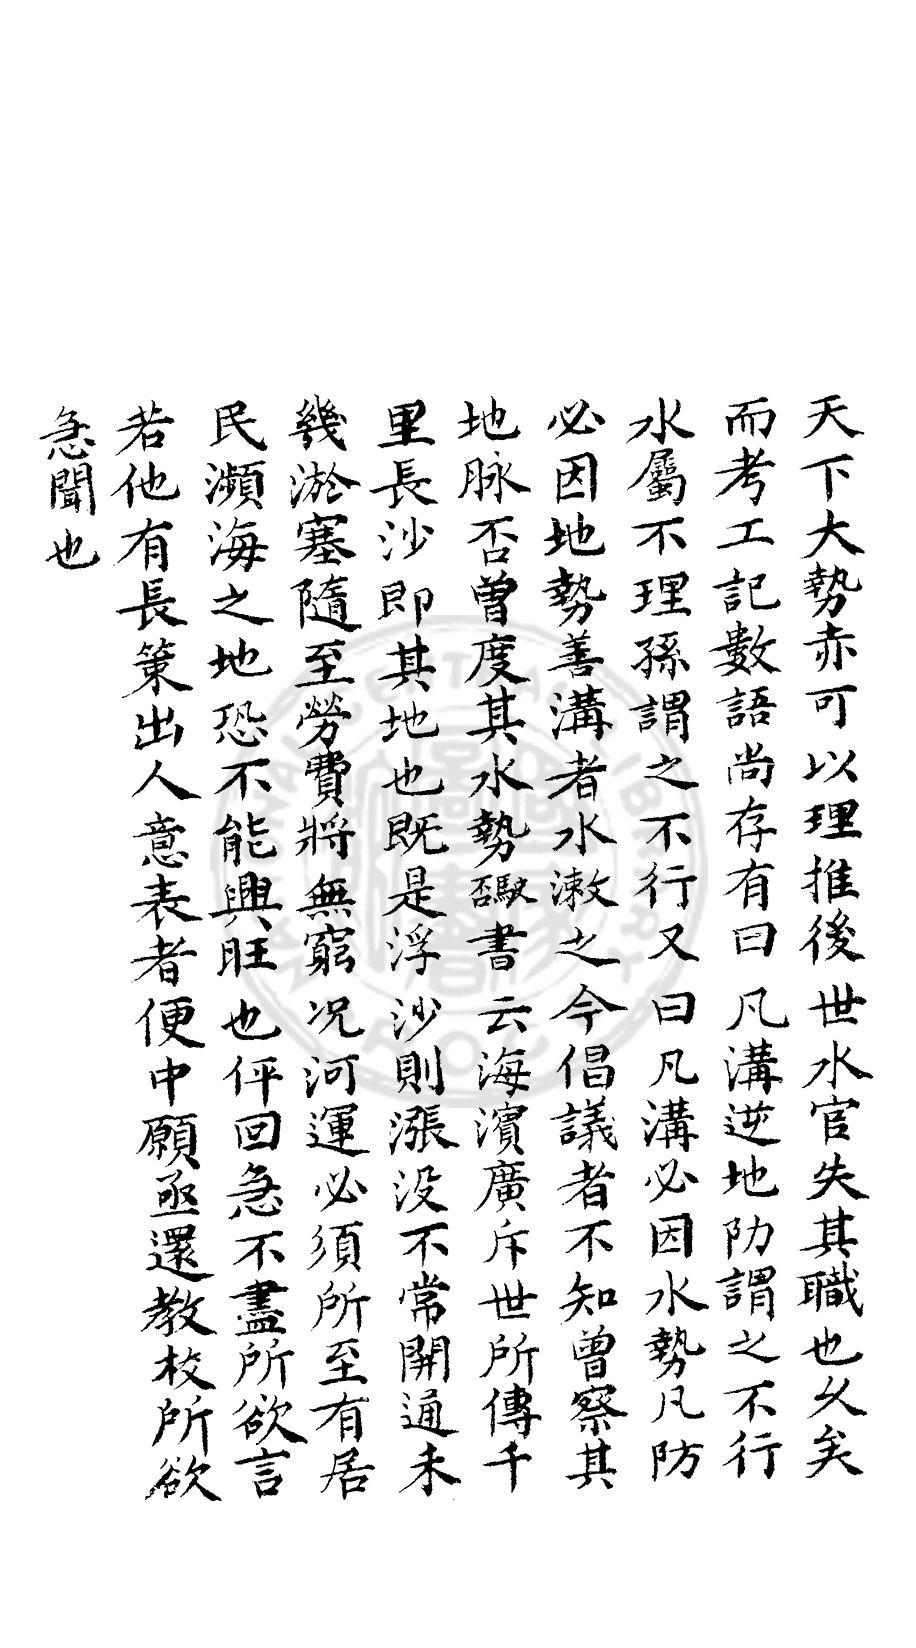 天下大勢赤可以理推後世水官失其職也久矣
而考工記數語尚存有曰凡溝逆地阞謂之不行
水屬不理孫謂之不行又曰凡溝必因水勢凡防
必因地勢善溝者水漱之今倡議者不知曾察其
地脉否曾度其水勢否駛書云海濱廣斥世所傳千
里長沙即其地也既是浮沙則漲没不常開通未
幾淤塞隨至勞費將無窮况河運必須所至有居
民瀕海之地恐不能興旺也伻回急不盡所欲言
若他有長策出人意表者便中願亟還教校所欲
急聞也